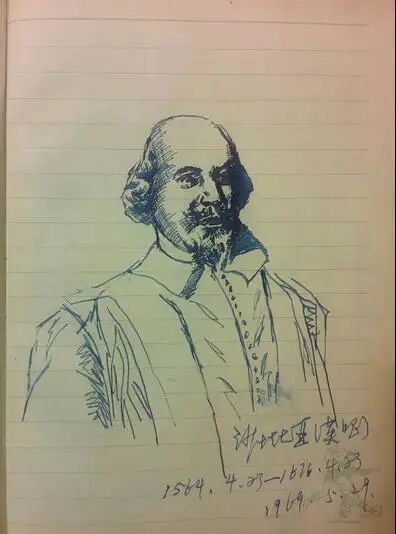 沙士比亚
1564. 4.23—1616. 4.23
1969. 5.